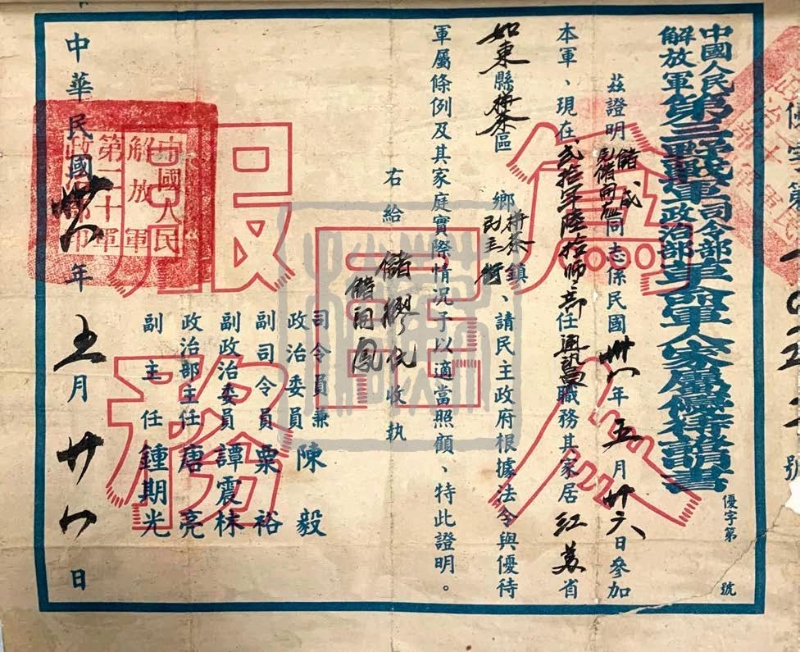 中國人民解放軍第三野戰軍司令部政治部革命軍人家屬優待證明書
優字第 號
茲證明儲成同志係民國卅八年五月廿六日參加
本軍、現在貳拾軍陸拾師部任職務其家居江苏省
如東縣栟茶區 鄉栟茶鎮民主街、請民主政府根據法令與優待
軍屬條例及其家庭實際情況予以適當照顧、特此證明。
右給
儲繆氏
收執
司令員兼政治委員 陳毅
副司令員 粟裕
副政治委員 譚震林
政治部主任 唐亮
副主任 鍾期光
中華民國卅八年五月廿八日
為人民服務
中國人民解放軍第二十軍政治部印